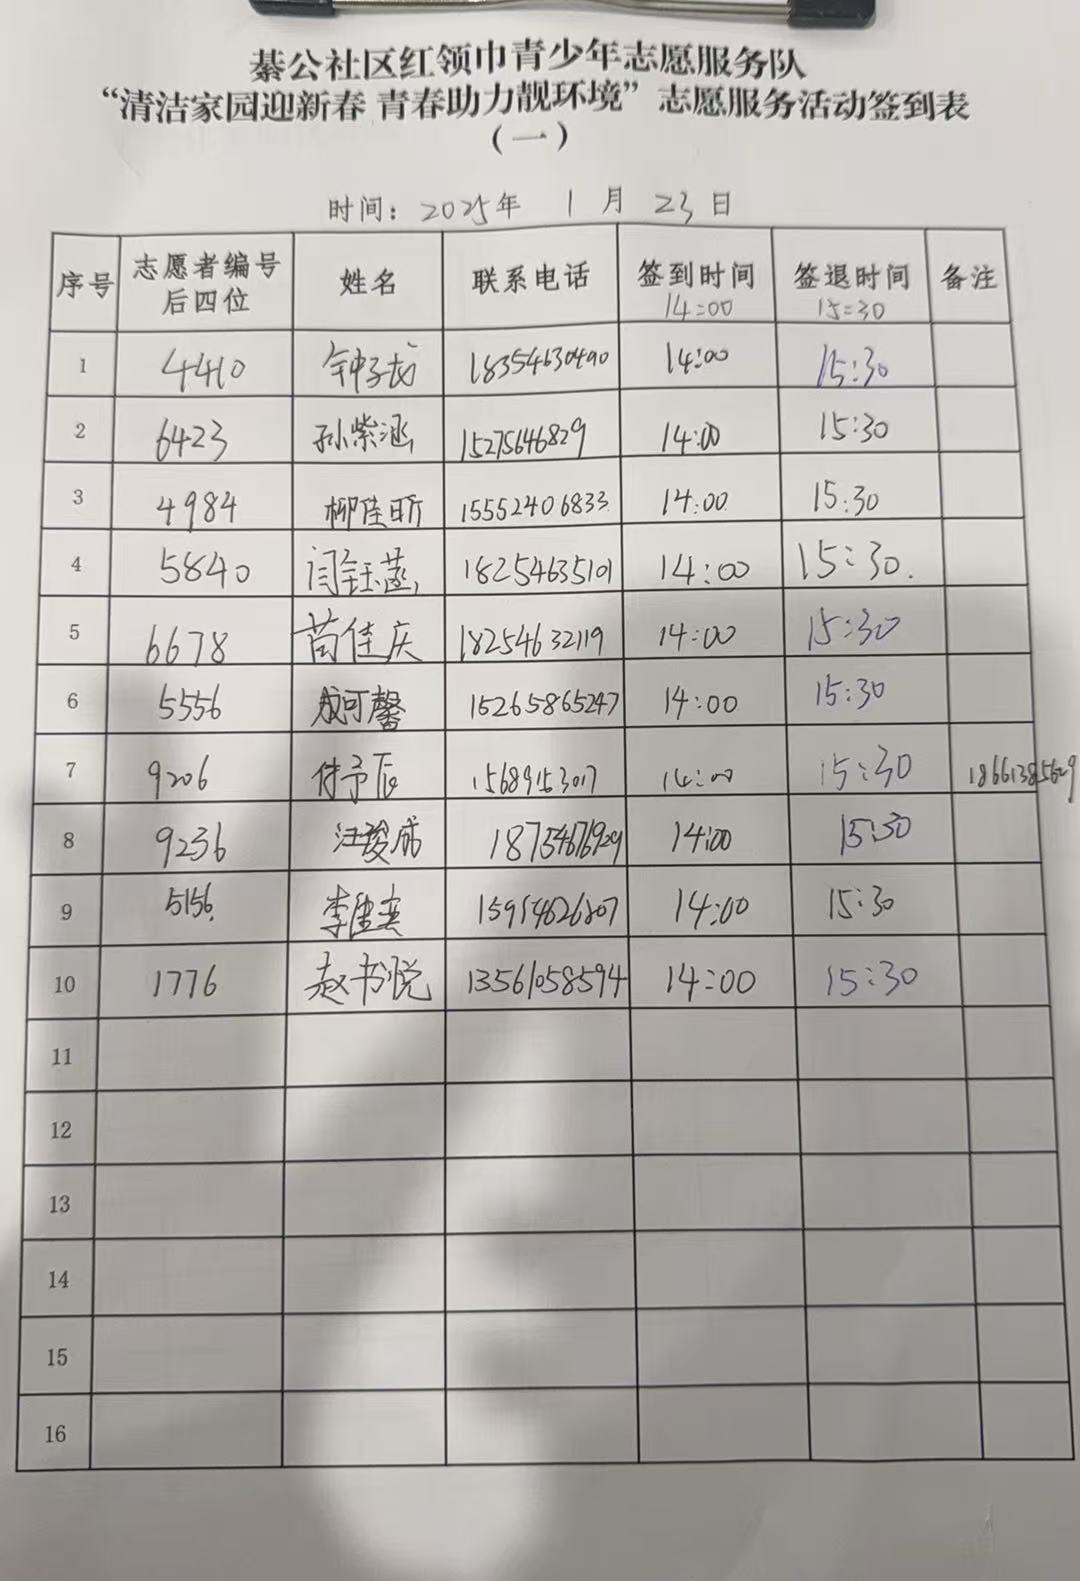 綦公社区红领巾青少年志愿服务队
“清洁家园迎新春 青春助力靓环境”志愿服务活动签到表
（一）
时间：2025年 1月 23日
序号 志愿者编号后四位 姓名 联系电话 签到时间 14:00 签退时间 15:30 备注
1 4410 钟子龙 18354630490 14:00 15:30
2 6423 孙紫涵 15275646829 14:00 15:30
3 4984 柳佳昕 15552406833 14:00 15:30
4 5840 闫钰菡 18254635101 14:00 15:30.
5 6678 苗佳庆 18254632119 14:00 15:30
6 5556 成可馨 15265865247 14:00 15:30
7 9206 付予辰 15689153017 14:00 15:30 18661385629
8 9236 汪骏成 14:00 15:30
9 5156. 14:00 15:30
10 1776 赵书悦 13561058594 14:00 15:30
11
12
13
14
15
16